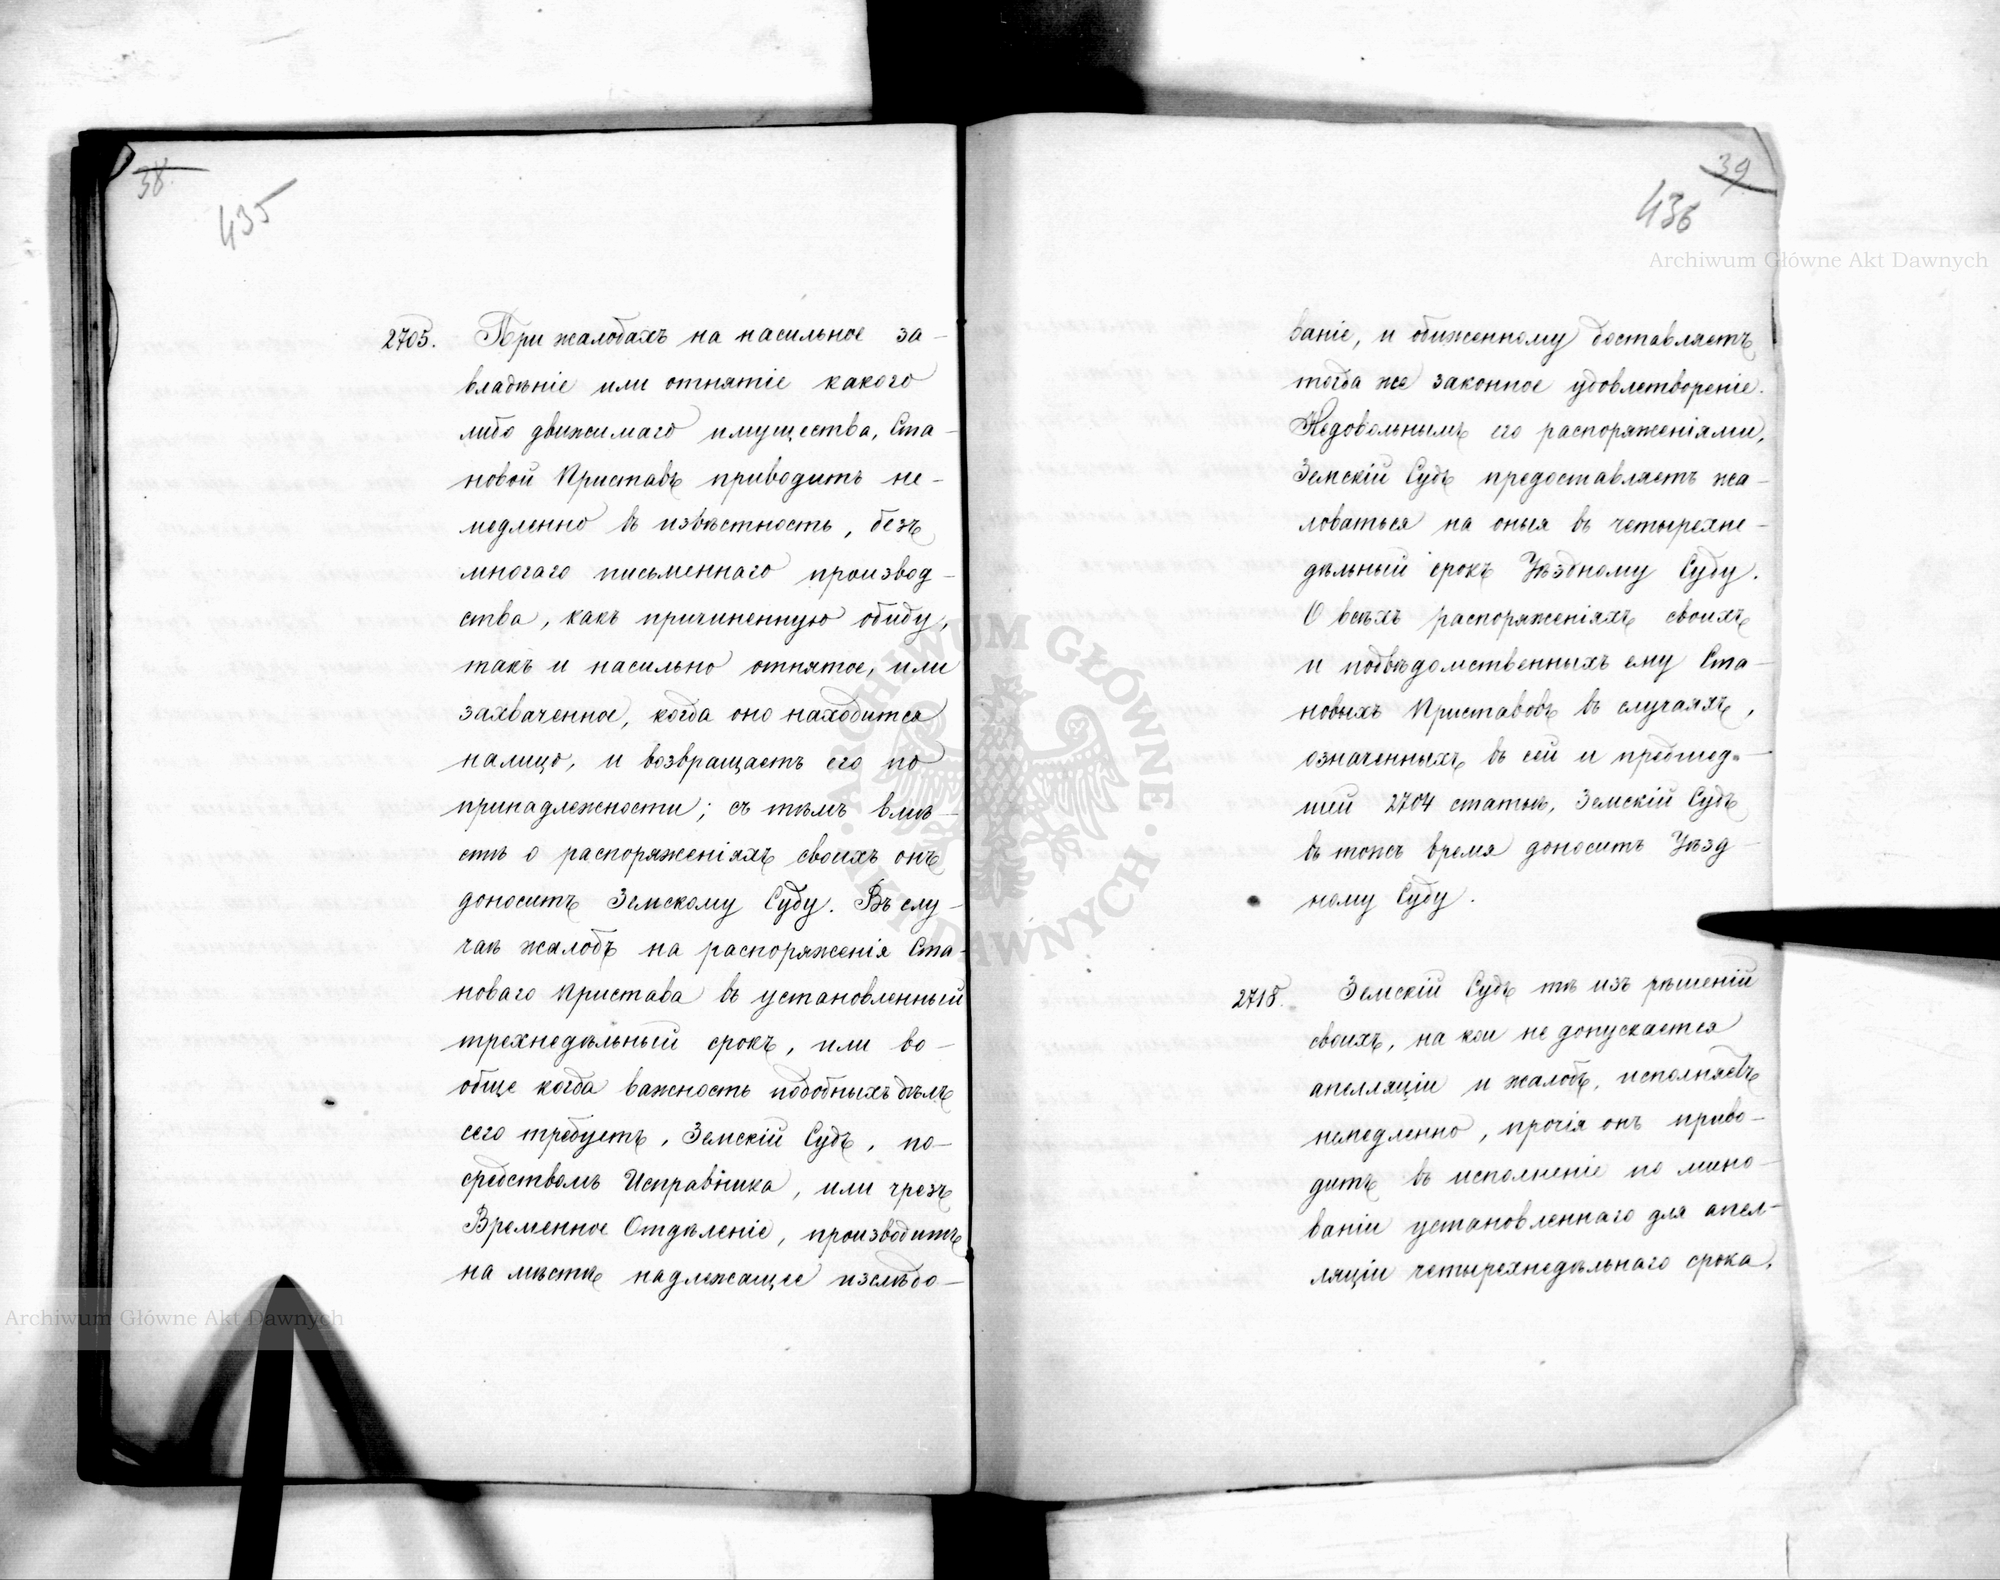 38
435
2705. При жалобахъ на насильное за-
владѣніе или отнятіе какого
либо движимаго имущества, Ста-
новой Приставъ приводитъ не-
медленно въ извѣстность, безъ
многаго письменнаго производ-
ства, какъ причиненную обиду,
такъ и насильно отнятое, или
захваченное, когда оно находится
налицо, и возвращаетъ его по
принадлежности; съ тѣмъ вмѣ-
стѣ о распоряженіяхъ своихъ онъ
доноситъ Земскому Суду. Въ слу-
чаѣ жалобъ на распоряженія Ста-
новаго Пристава въ установленный
трехнедѣльный срокъ, или во-
обще когда важность подобныхъ дѣлъ
сего требуетъ, Земскій Судъ, по-
средствомъ Исправника, или чрезъ
Временное Отдѣленіе, производитъ
на мѣстѣ надлежащее изслѣдо-
39
436
Archiwum Główne Akt Dawnych
ваніе, и обиженному доставляетъ
тогда же законное удовлетвореніе.
Недовольнымъ его распоряженіями,
Земскій Судъ предоставляетъ жа-
ловаться на оныя въ четырехне-
дѣльный срокъ Уѣздному Суду.
О всѣхъ распоряженіяхъ своихъ
и подвѣдомственныхъ ему Ста-
новыхъ Приставовъ въ случаяхъ,
означенныхъ въ сей и предшед-
шей 2704 статьѣ, Земскій Судъ
въ тожъ время доноситъ Уѣзд-
ному Суду.
2718. Земскій Судъ тѣ изъ рѣшеній
своихъ, на кои не допускается
апелляціи и жалобъ, исполняетъ
немедленно, прочія онъ приво-
дитъ въ исполненіе по мино-
ваніи установленнаго для апел-
ляціи четырехнедѣльнаго срока.
Archiwum Główne Akt Dawnych
ARCHIWUM GŁÓWNE · AKT DAWNYCH ·